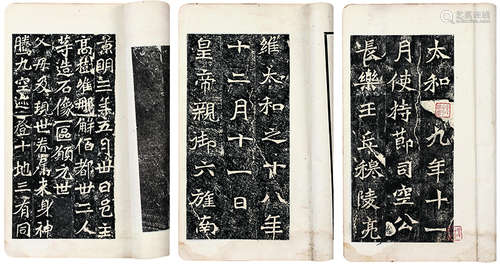 太和九年十一
月使持節司空公
長樂王丘穆陵亮
維太和之十八年
十二月十一日
皇帝親御六旌南
景明三年五月卅日邑主
高樹維那解佰都卅二人
等造石像一區願元世
父母及現世眷屬來身神
騰九空迹登十地三有同